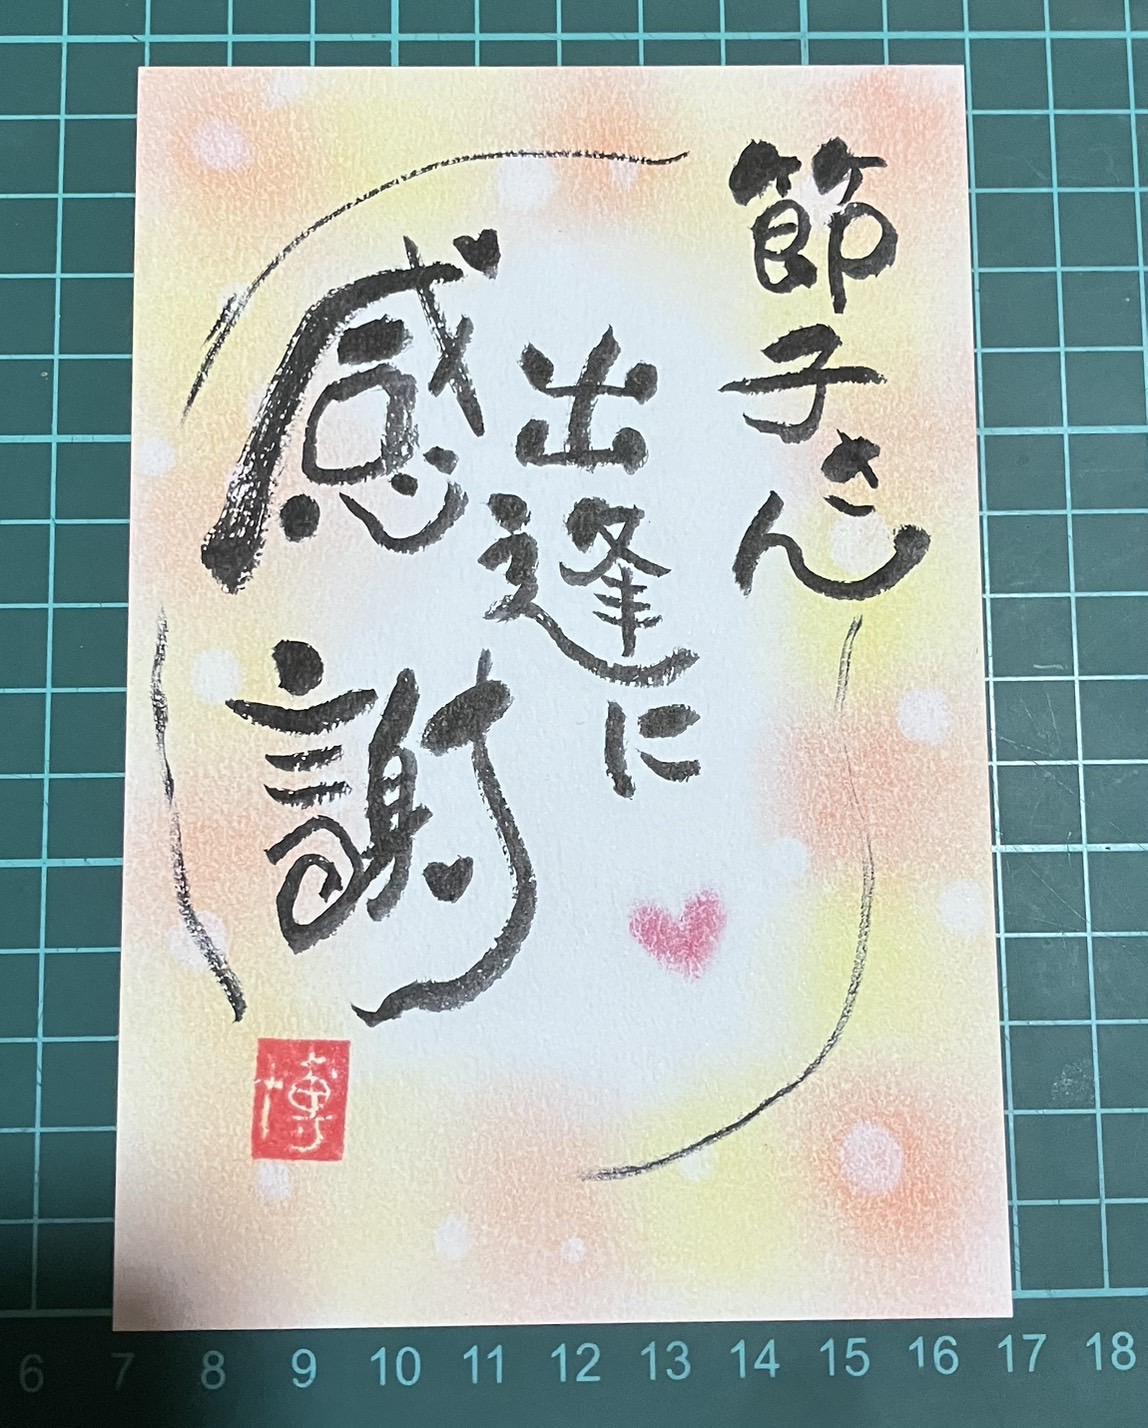 節子さん
出逢に
感謝
博
6 7 8 9 10 11 12 13 14 15 16 17 18